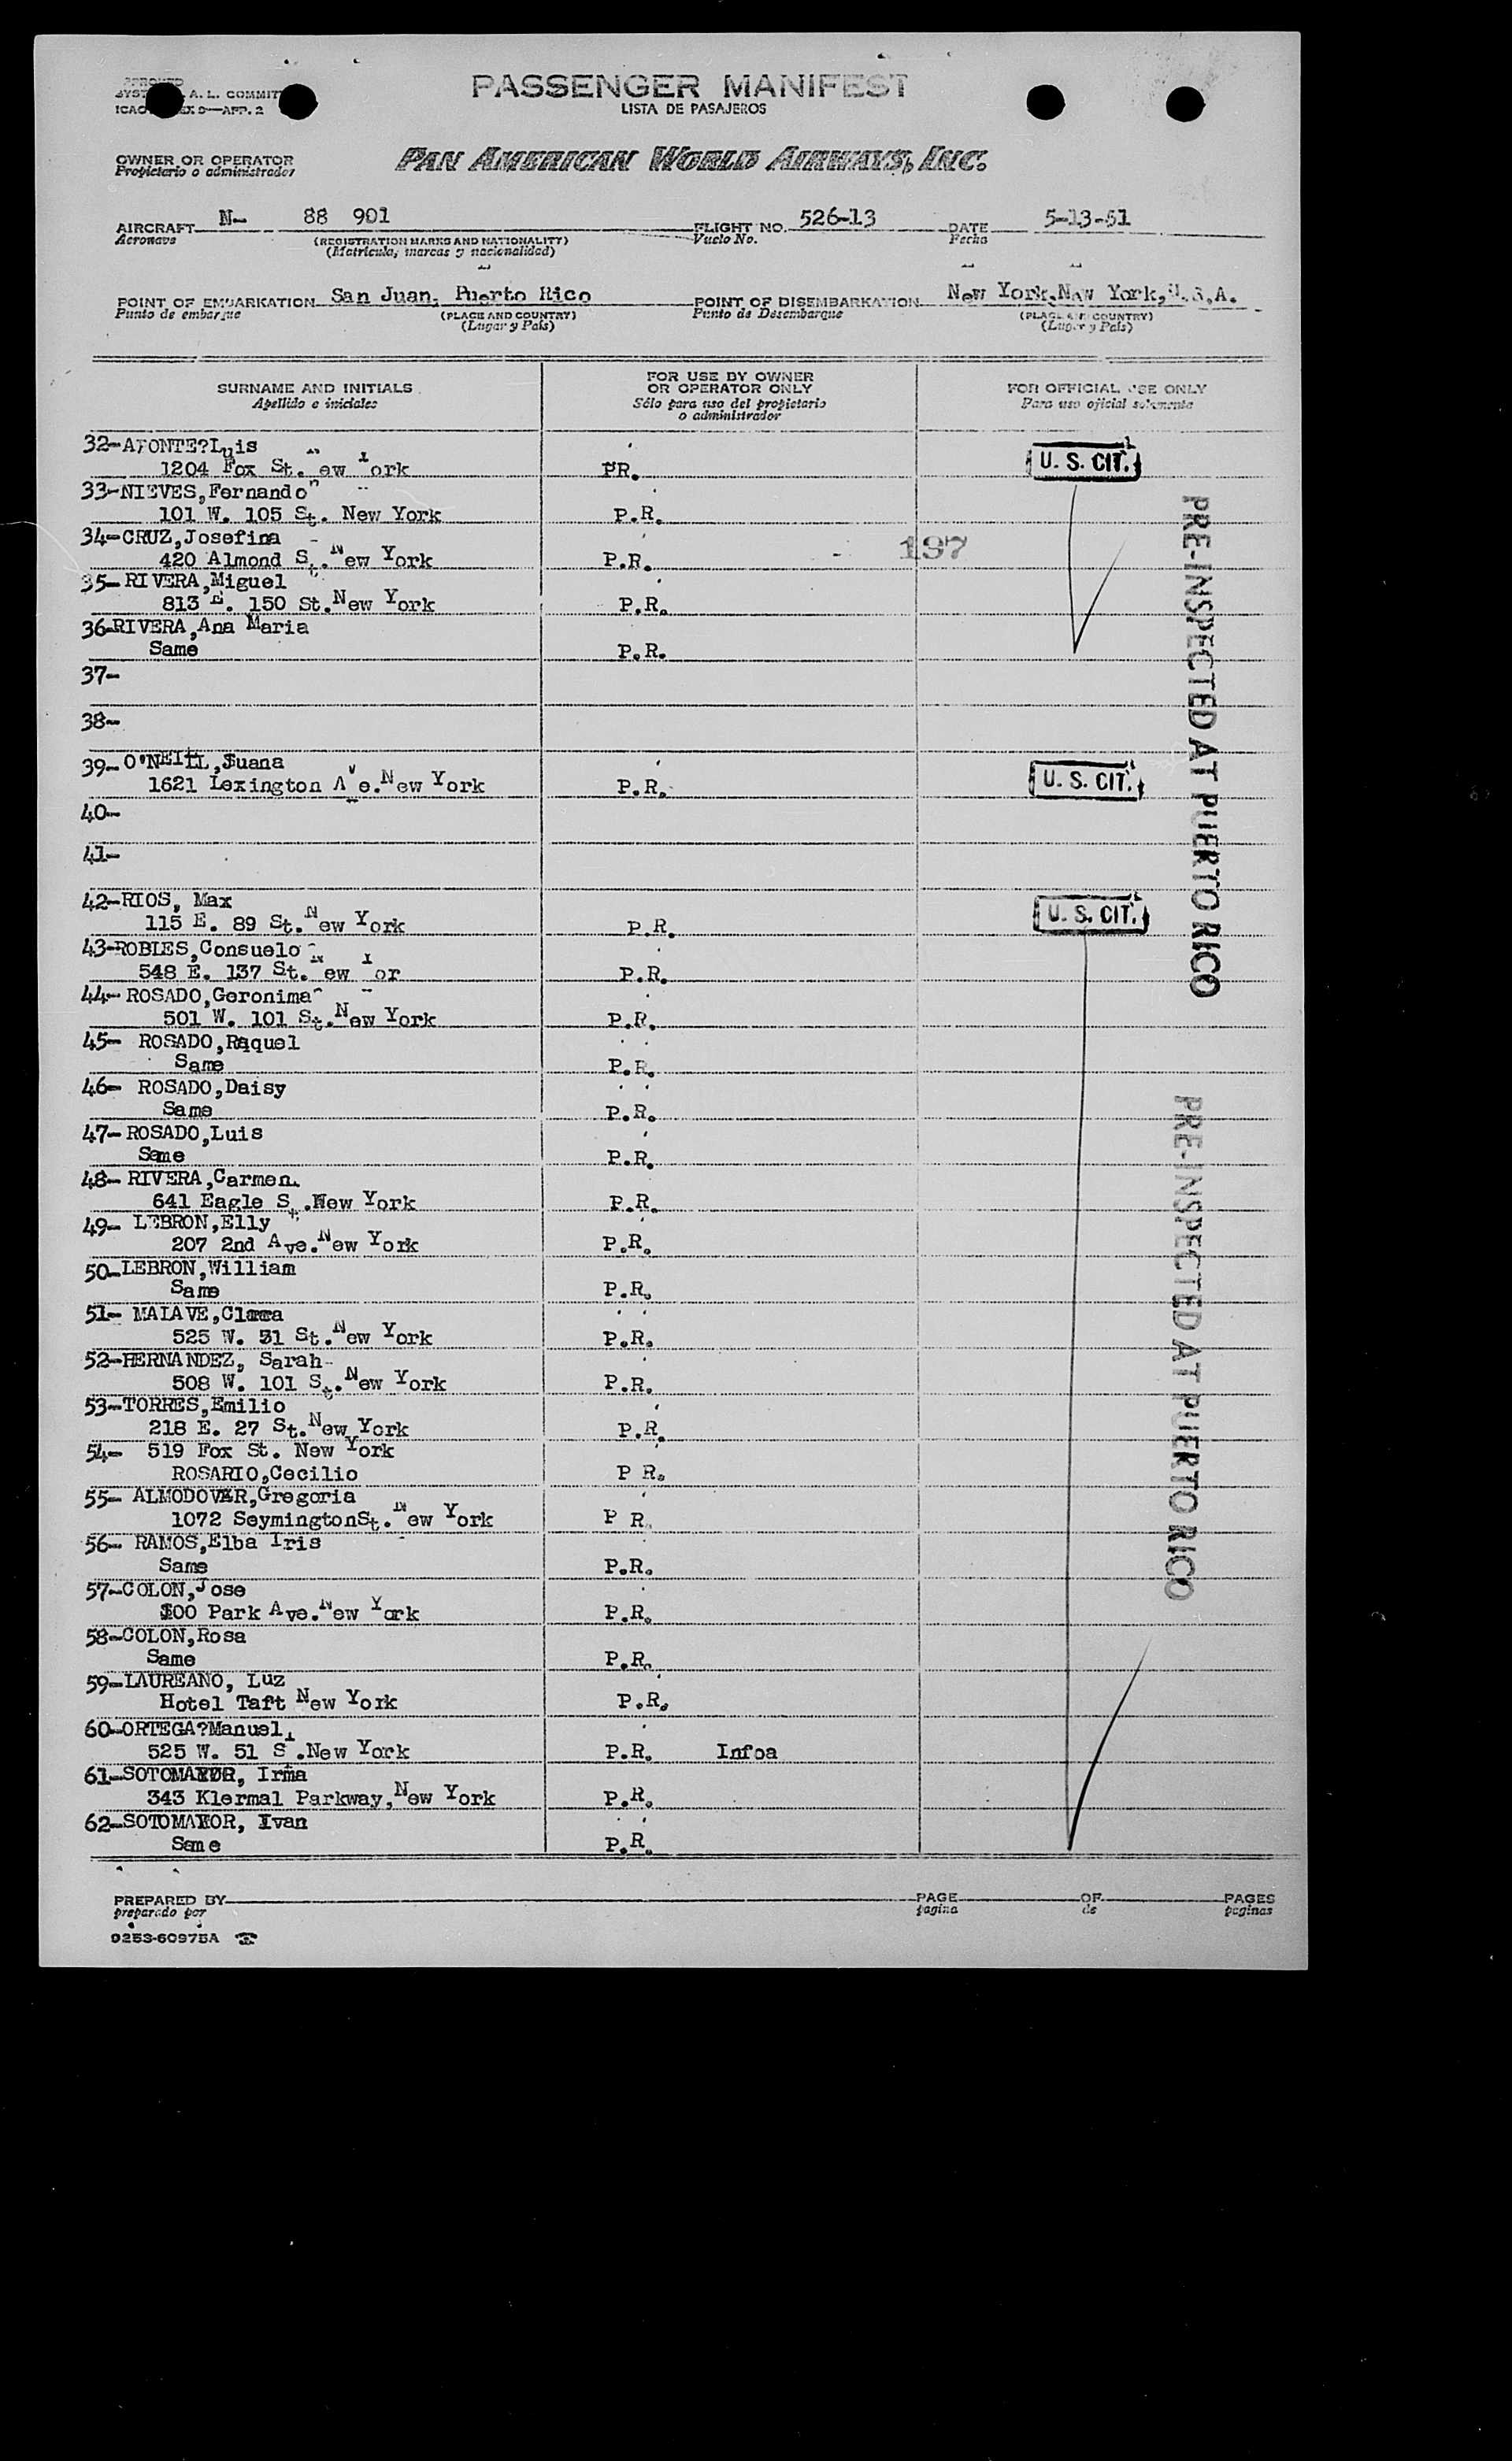 A. L. COMMIT
PASSENGER MANIFEST
LISTA DE PASAJEROS
OWNER OR OPERATOR
Propietario o administrador
PAN AMERICAN WORLD AIRWAYS, INC.
AIRCRAFT N- 88 901 FLIGHT NO. 526-13 DATE 5-13-51
Aeronave (REGISTRATION MARKS AND NATIONALITY) Vuelo No. Fecha
(Matricula, marcas y nacionalidad)
POINT OF EMBARKATION San Juan, Puerto Rico POINT OF DISEMBARKATION New York,New York,U.S.A.
Punto de embarque (PLACE AND COUNTRY) Punto de Desembarque (PLACE AND COUNTRY)
(Lugar y País) (Lugar y País)
SURNAME AND INITIALS FOR USE BY OWNER OR OPERATOR ONLY FOR OFFICIAL USE ONLY
Apellido e iniciales Sólo para uso del propietario o administrador Para uso oficial solamente
32-APONTE?Luis
1204 Fox St. ew York PR. U. S. CIT.
33-NIEVES,Fernando
101 W. 105 St. New York P.R.
34-CRUZ,Josefina
420 Almond St. New York P.R. 197
35-RIVERA,Miguel
813 E. 150 St.New York P.R.
36-RIVERA,Ana Maria
Same P.R.
37-
38-
39-O'NEILL,Juana
1621 Lexington Ave.New York P.R. U. S. CIT.
40-
41-
42-RIOS, Max
115 E. 89 St.New York P.R. U. S. CIT.
43-ROBLES,Consuelo
548 E. 137 St. New Yor P.R.
44-ROSADO,Geronima
501 W. 101 St.New York P.R.
45- ROSADO,Raquel
Same P.R.
46- ROSADO,Daisy
Same P.R.
47-ROSADO,Luis
Same P.R.
48-RIVERA,Carmen
641 Eagle St.New York P.R.
49- LEBRON,Elly
207 2nd Ave.New York P.R.
50-LEBRON,William
Same P.R.
51- MALAVE,
525 W. 51 St.New York P.R.
52-HERNANDEZ, Sarah
508 W. 101 St.New York P.R.
53-TORRES,Emilio
218 E. 27 St.New York P.R.
54- 519 Fox St. New York
ROSARIO,Cecilio P R.
55- ALMODOVAR,Gregoria
1072 SeymingtonSt. New York P R.
56- RAMOS,Elba Iris
Same P.R.
57-COLON,Jose
100 Park Ave.New York P.R.
58-COLON,Rosa
Same P.R.
59-LAUREANO, Luz
Hotel Taft New York P.R.
60-ORTEGA?Manuel
525 W. 51 St.New York P.R. Infoa
61-SOTOMAYOR, Irma
343 Klermal Parkway,New York P.R.
62-SOTOMAYOR, Ivan
Same P.R.
PRE-INSPECTED AT PUERTO RICO
PRE-INSPECTED AT PUERTO RICO
PREPARED BY PAGE OF PAGES
preparado por pagina de paginas
9253-60975A